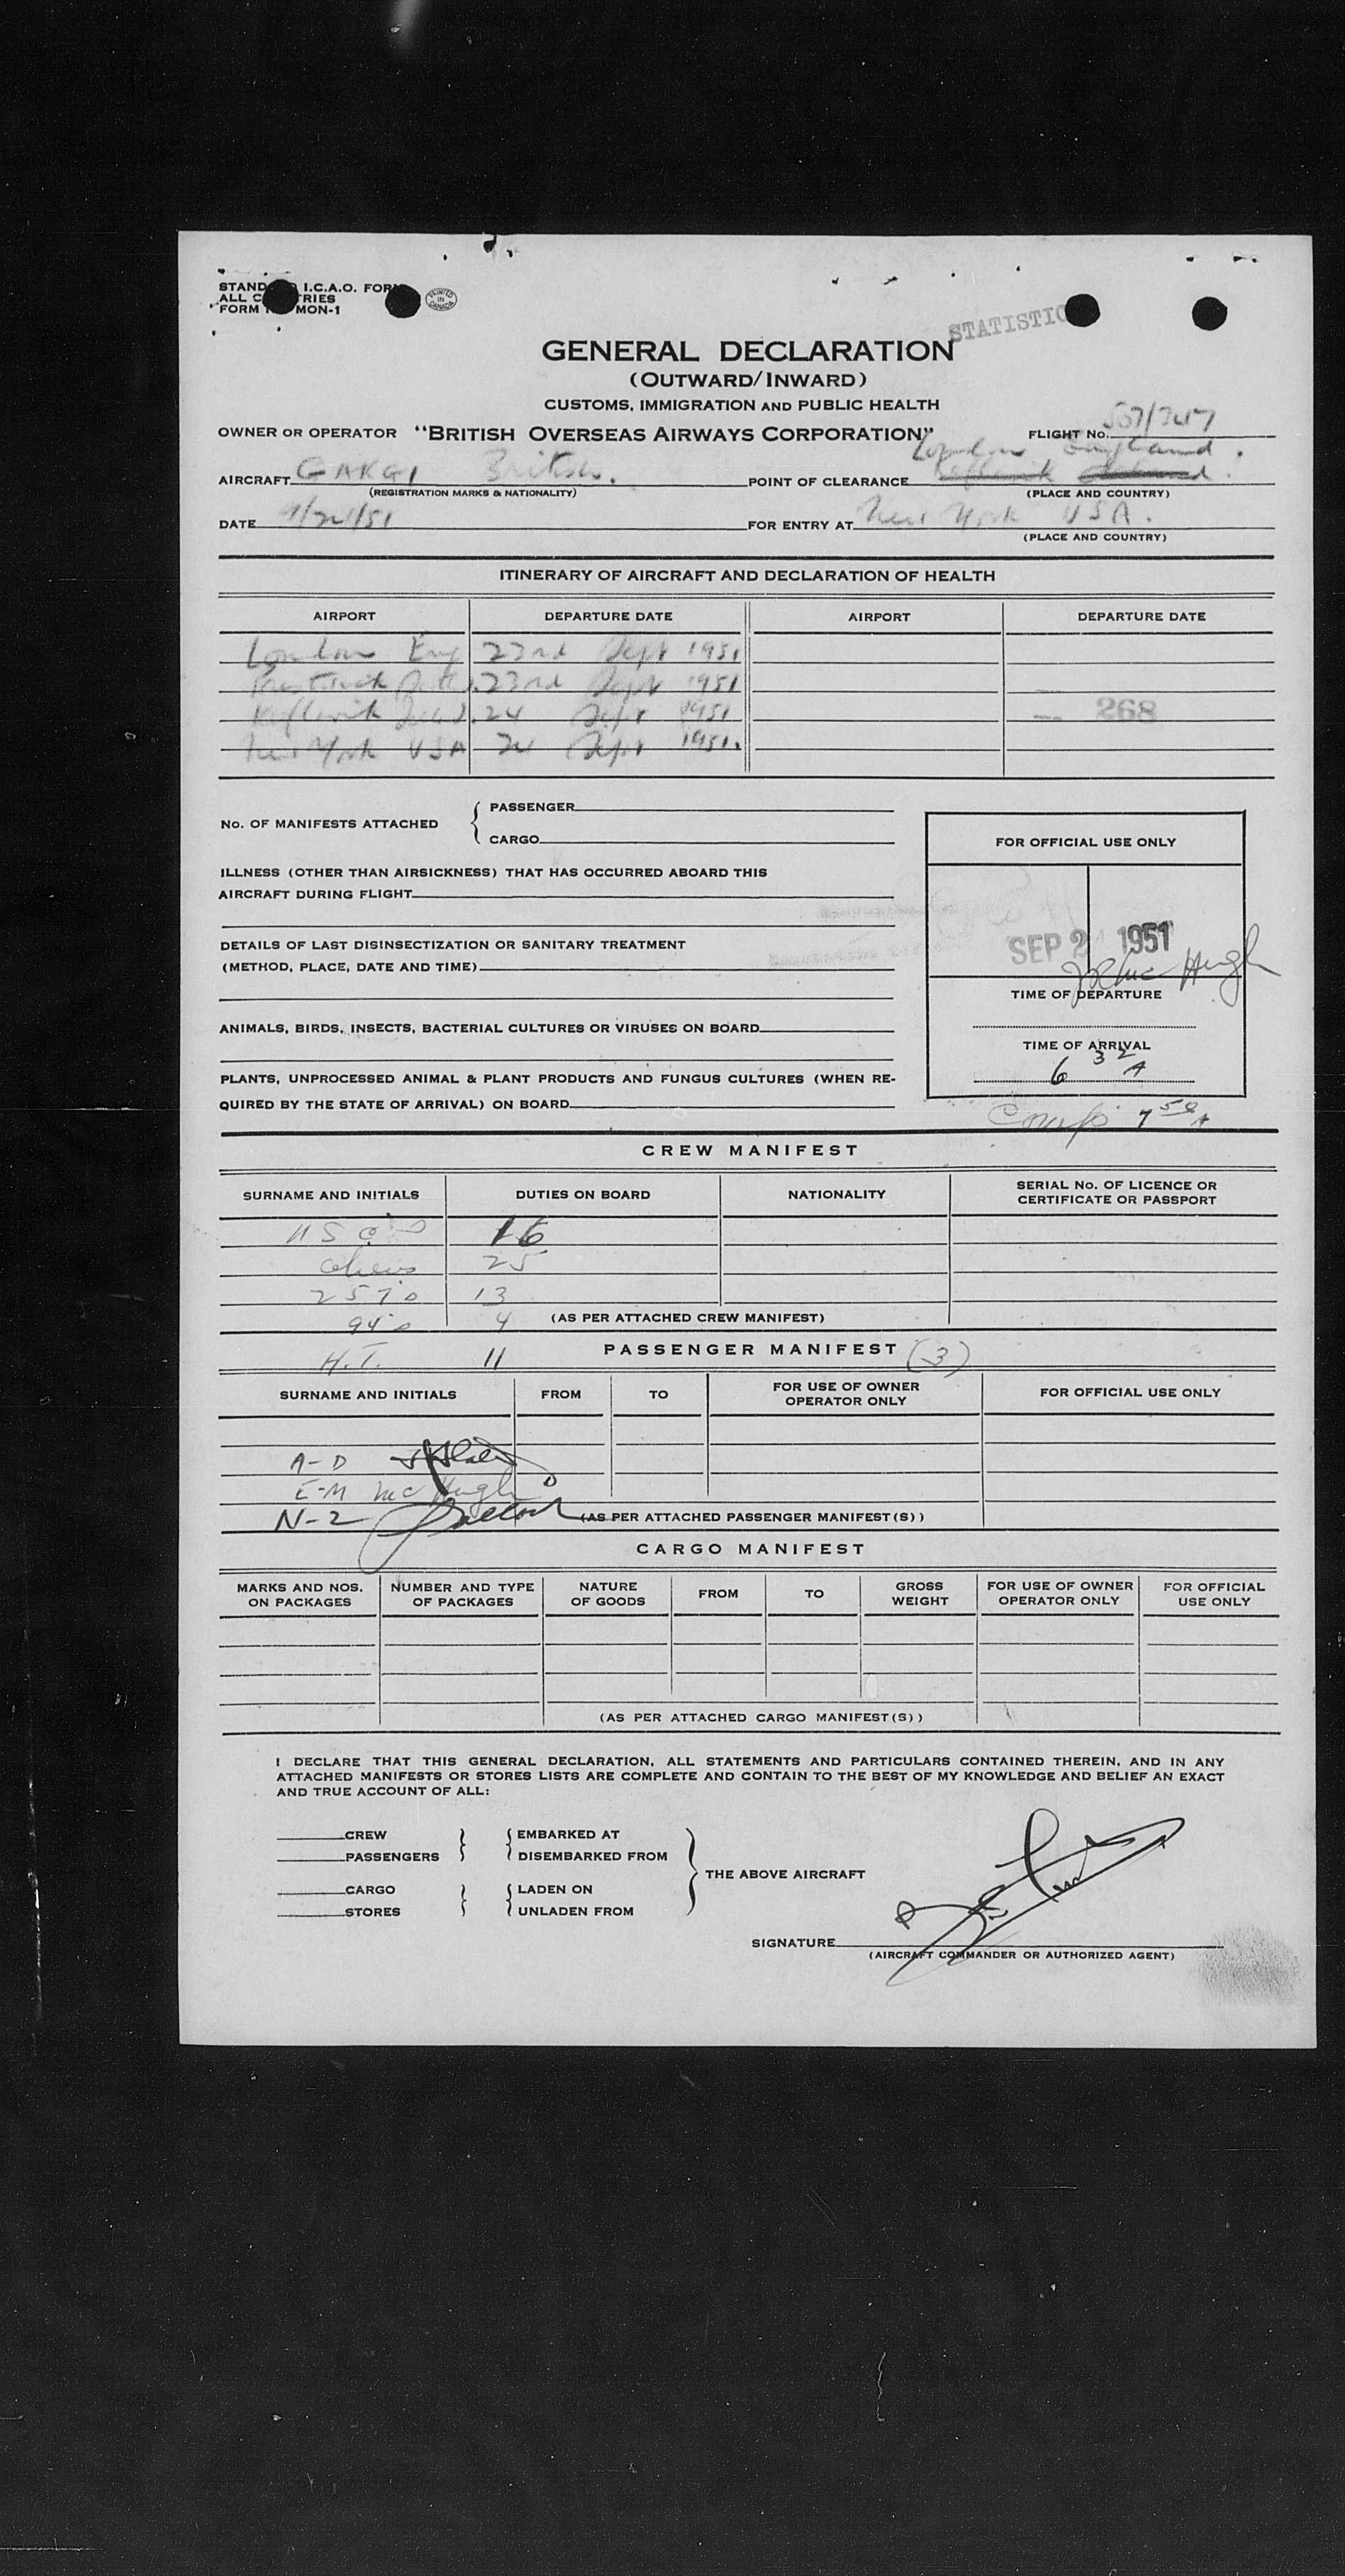 I.C.A.O.
ALL
FORM MON-1
PRINTED IN CANADA
GENERAL DECLARATION
(OUTWARD/INWARD)
CUSTOMS, IMMIGRATION AND PUBLIC HEALTH
OWNER OR OPERATOR "BRITISH OVERSEAS AIRWAYS CORPORATION" FLIGHT No.
London England.
AIRCRAFT GAKGI British. POINT OF CLEARANCE
(REGISTRATION MARKS & NATIONALITY) (PLACE AND COUNTRY)
DATE 9/24/51 FOR ENTRY AT New York USA.
(PLACE AND COUNTRY)
ITINERARY OF AIRCRAFT AND DECLARATION OF HEALTH
AIRPORT DEPARTURE DATE AIRPORT DEPARTURE DATE
London Eng 23rd Sept 1951
Prestwick 23rd Sept 1951
Keflavik 24 Sept 1951 268
New York USA 24 Sept 1951.
No. OF MANIFESTS ATTACHED
PASSENGER
CARGO
ILLNESS (OTHER THAN AIRSICKNESS) THAT HAS OCCURRED ABOARD THIS
AIRCRAFT DURING FLIGHT
DETAILS OF LAST DISINSECTIZATION OR SANITARY TREATMENT
(METHOD, PLACE, DATE AND TIME)
ANIMALS, BIRDS, INSECTS, BACTERIAL CULTURES OR VIRUSES ON BOARD
PLANTS, UNPROCESSED ANIMAL & PLANT PRODUCTS AND FUNGUS CULTURES (WHEN RE-
QUIRED BY THE STATE OF ARRIVAL) ON BOARD
FOR OFFICIAL USE ONLY
SEP 2 1951
McHugh
TIME OF DEPARTURE
TIME OF ARRIVAL
6 32 A
Comp 7 50 A
CREW MANIFEST
SURNAME AND INITIALS DUTIES ON BOARD NATIONALITY SERIAL No. OF LICENCE OR
CERTIFICATE OR PASSPORT
16
25
13
4 (AS PER ATTACHED CREW MANIFEST)
H.T. 11 PASSENGER MANIFEST (3)
SURNAME AND INITIALS FROM TO FOR USE OF OWNER
OPERATOR ONLY FOR OFFICIAL USE ONLY
A-D
E-M McHugh
N-Z
(AS PER ATTACHED PASSENGER MANIFEST(S))
CARGO MANIFEST
MARKS AND NOS.
ON PACKAGES NUMBER AND TYPE
OF PACKAGES NATURE
OF GOODS FROM TO GROSS
WEIGHT FOR USE OF OWNER
OPERATOR ONLY FOR OFFICIAL
USE ONLY
(AS PER ATTACHED CARGO MANIFEST(S))
I DECLARE THAT THIS GENERAL DECLARATION, ALL STATEMENTS AND PARTICULARS CONTAINED THEREIN, AND IN ANY
ATTACHED MANIFESTS OR STORES LISTS ARE COMPLETE AND CONTAIN TO THE BEST OF MY KNOWLEDGE AND BELIEF AN EXACT
AND TRUE ACCOUNT OF ALL:
CREW EMBARKED AT
PASSENGERS DISEMBARKED FROM
THE ABOVE AIRCRAFT
CARGO LADEN ON
STORES UNLADEN FROM
SIGNATURE
(AIRCRAFT COMMANDER OR AUTHORIZED AGENT)